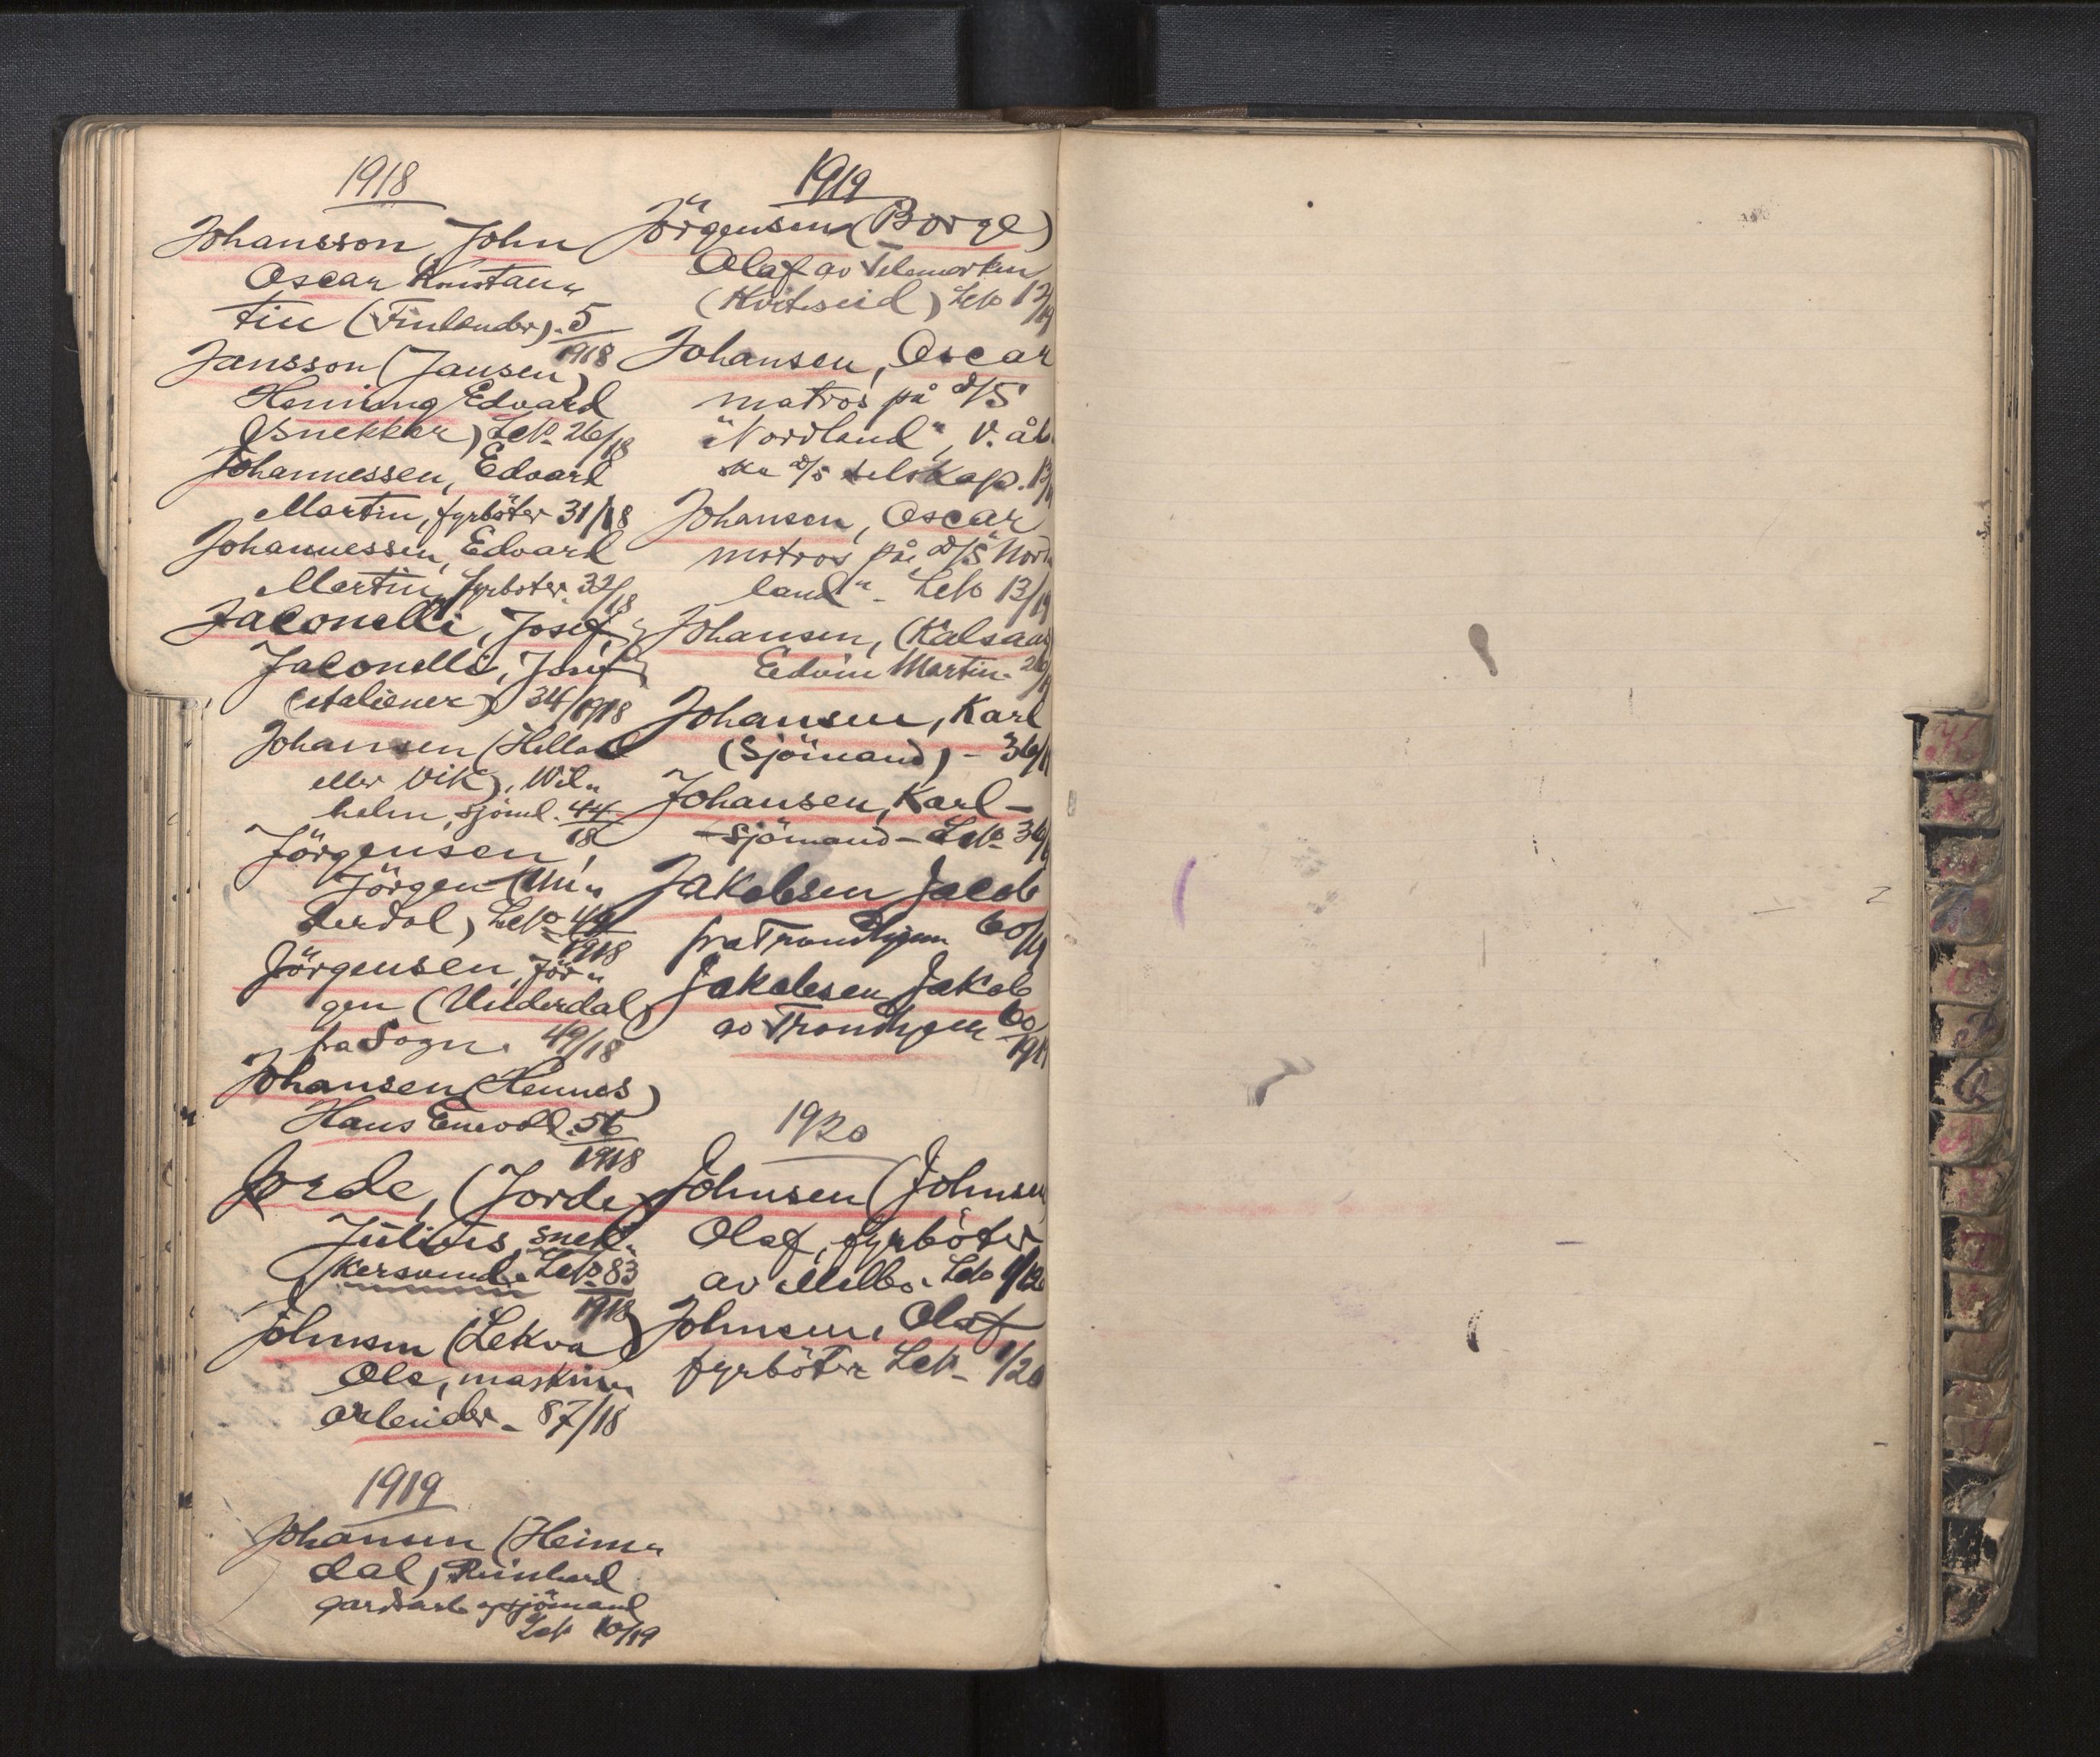 1918
Johansson, John
Oscar Konstan„
tin (Finlænder). 5/1918
Jansson (Jansen)
Henning Edvard
(snekker) Lek 26/18
Johannessen, Edvard
Martin, fyrböter 31/18
Johannessen, Edvard
Martin, fyrböter. 32/18
Jaconelli, Josef,
Jaconelli, Josef
(italiener) 34/1918
Johansen (Helland
eller Vik), Wil„
helm, sjömd. 44/18
Jörgensen,
Jörgen (Un„
derdal) Lek 49/1918
Jörgensen, Jör„
gen (Underdal)
fra Sogn. 49/18
Johansen (Hennes)
Hans Enevold. 56/1918
Jorde, (Jorde)
Julius, snek„
kersvend. Lek 83/1918
Johnsen (Lekva)
Ole, maskin„
arbeider - 87/18
1919
Johansen (Heim„
dal) Reinhard
gardsarb og sjömand
Lek 10/19
1919
Jörgensen (Borge)
Olaf av Telemarken
(Kviteseid) Lek 12/19
Johansen, Oscar
matros på d/s
"Nordland", V. ål.
ske d/s selskap. 13/19
Johansen, Oscar
matros på d/s "Nord
land" - Lek 13/19
Johansen, (Kalsaas)
Edvin Martin. 26/19
Johansen, Karl
(sjömand) - 36/19
Johansen, Karl -
- sjömand - Lek 36/19
Jakobsen Jacob
fra Trondhjem 60/19
Jakobsen Jakob
av Trondhjem 60/1919
1920
Johnsen (Johnsen
Olaf, fyrböter
av Melbo. Lek 1/20
Johnsen, Olaf
fyrböter Lek - 1/20